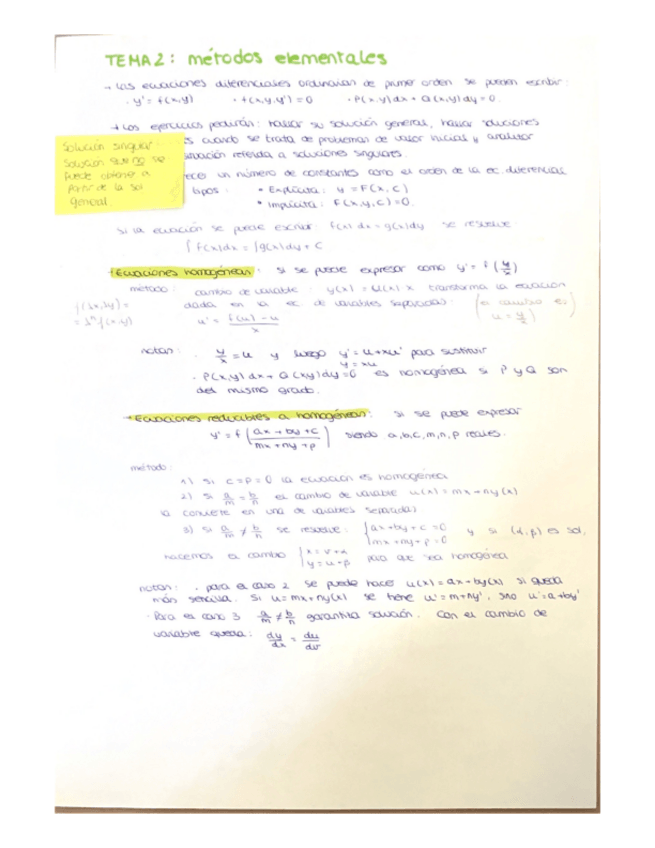 TEMA 2: métodos elementales
→ Las ecuaciones diferenciales ordinarias de primer orden se pueden escribir:
· y' = f(x,y) · f(x,y,y') = 0 · P(x,y)dx + Q(x,y)dy = 0.
→ Los ejercicios pedirán: hallar su solución general, hallar soluciones
Solución singular:
Solución que no se
puede obtener a
partir de la sol
general
es cuando se trata de problemas de valor inicial y analizar
situación referida a soluciones singulares.
un número de constantes como el orden de la ec. diferencial
tipos: • Explícita: y = F(x,C)
• Implícita: F(x,y,C) = 0.
Si la ecuación se puede escribir: f(x)dx = g(x)dy se resuelve:
∫f(x)dx = ∫g(x)dy + C
→ Ecuaciones homogéneas: si se puede expresar como y' = f(y/x)
método: cambio de variable: y(x) = u(x)·x transforma la ecuación
dada en la ec de variables separadas: (el cambio es u = y/x)
u' = (f(u) - u)/x
notas: · y/x = u y luego y' = u + xu' para sustituir
y = xu
· P(x,y)dx + Q(x,y)dy = 0 es homogénea si P y Q son
del mismo grado.
→ Ecuaciones reducibles a homogéneas: si se puede expresar
y' = f((ax + by + c)/(mx + ny + p)) siendo a,b,c,m,n,p reales.
método:
1) si c = p = 0 la ecuación es homogénea
2) si a/m = b/n el cambio de variable u(x) = mx + ny(x)
la convierte en una de variables separadas
3) si a/m ≠ b/n se resuelve: {ax + by + c = 0 mx + ny + p = 0 y si (α,β) es sol,
hacemos el cambio {x = v + α y = u + β para que sea homogénea
notas: · para el caso 2 se puede hacer u(x) = ax + by(x) si queda
más sencilla. Si u = mx + ny(x) se tiene u' = m + ny', sino u' = a + by'
· Para el caso 3 a/m ≠ b/n garantiza solución. Con el cambio de
variable queda: dy/dx = du/dv